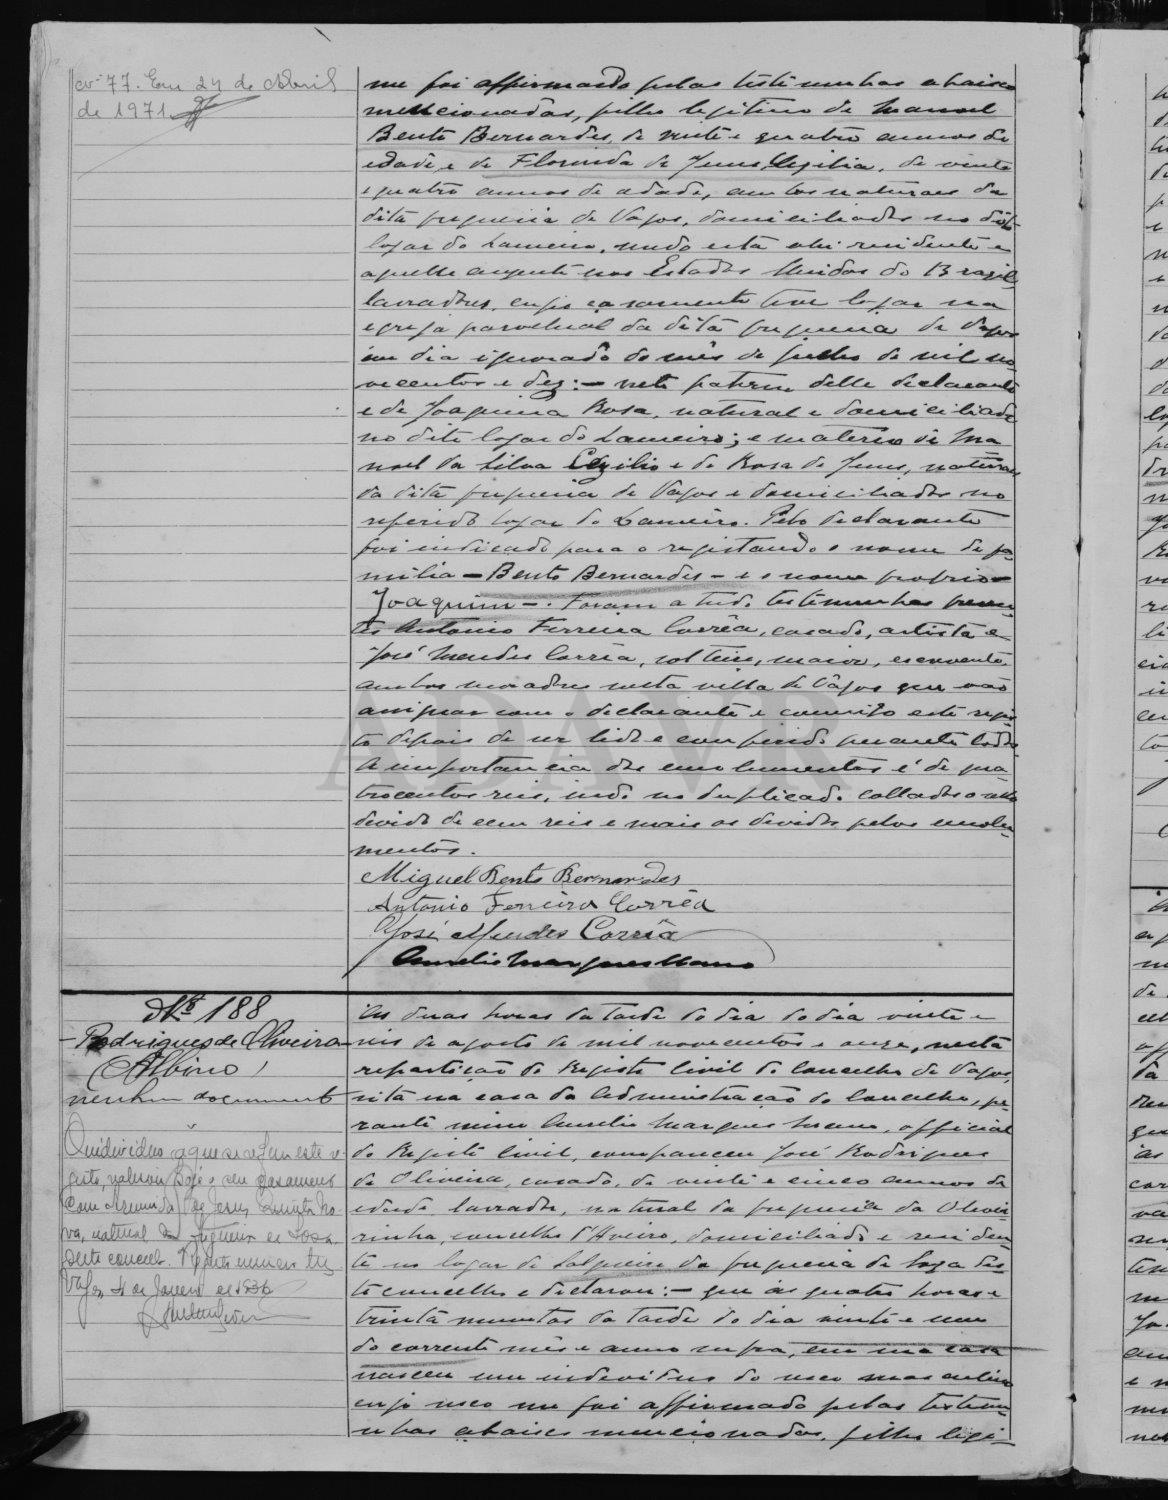 Em 27 de Abril
de 1971
me foi affirmado pelas testimunhas abaixo
mencionadas, filho legitimo de Manoel
Bento Bernardes, de vinte e quatro annos de
edade, e de Florinda de Jesus Cezilia, de vinte
e quatro annos de edade, ambos naturaes da
dita freguezia de Vagos, domiciliados no dito
logar do Lameiro, sendo esta ahi residente e
aquelle auzente nos Estados Unidos do Brazil,
lavradores, cujo casamento teve logar na
egreja parochial da dita freguezia de Vagos
em dia ignorado do mês de Julho de mil no-
vecentos e dez:— neto paterno delle declarante
e de Joaquina Rosa, natural e domiciliada
no dito logar do Lameiro; e materno de Ma-
noel da Silva Cezilio e de Rosa de Jesus, naturaes
da dita freguezia de Vagos e domiciliados no
referido logar do Lameiro. Pelo declarante
foi indicado para o registando o nome de fa-
milia — Bento Bernardes — e o nome proprio —
Joaquim —. Foram a tudo testimunhas presen-
tes Antonio Ferreira Corrêa, casado, artista e
José Mendes Corrêa, solteiro, maior, escrevente,
ambos moradores nesta villa de Vagos que vão
assignar com o declarante e commigo este regis-
to depois de ser lido e conferido perante todos.
A importancia dos emolumentos é de qua-
trocentos reis, indo no duplicado collados o sello
devido de cem reis e mais os devidos pelos emolu-
mentos.
Miguel Bento Bernardes
Antonio Ferreira Corrêa
José Mendes Corrêa
Aurelio Marques Mano
ADAVR
Nº 188
— Rodrigues de Oliveira —
Albino
nenhum documento
O individuo a que se refere este re-
gisto, realisou hoje o seu casamento
com de Jesus
natural da freguezia de Soza,
deste concelho. Registo numero tres
Vagos, 4 de Janeiro de 1936
As duas horas da tarde do dia do dia vinte e
seis de agosto de mil novecentos e onze, nesta
repartição do Registo Civil do Concelho de Vagos,
sita na casa da Administração do Concelho, pe-
rante mim Aurelio Marques Mano, official
do Registo Civil, compareceu José Rodrigues
de Oliveira, casado, de vinte e cinco annos de
edade, lavrador, natural da freguezia da Olivei-
rinha, concelho d'Aveiro, domiciliado e residen-
te no logar de Salgueiro da freguezia de Soza des-
te concelho e declarou:— que ás quatro horas e
trinta minutos da tarde do dia vinte e um
do corrente mês e anno supra, em sua casa
nasceu um individuo do sexo masculino
cujo sexo me foi affirmado pelas testemu-
nhas abaixo mencionadas, filho legi-